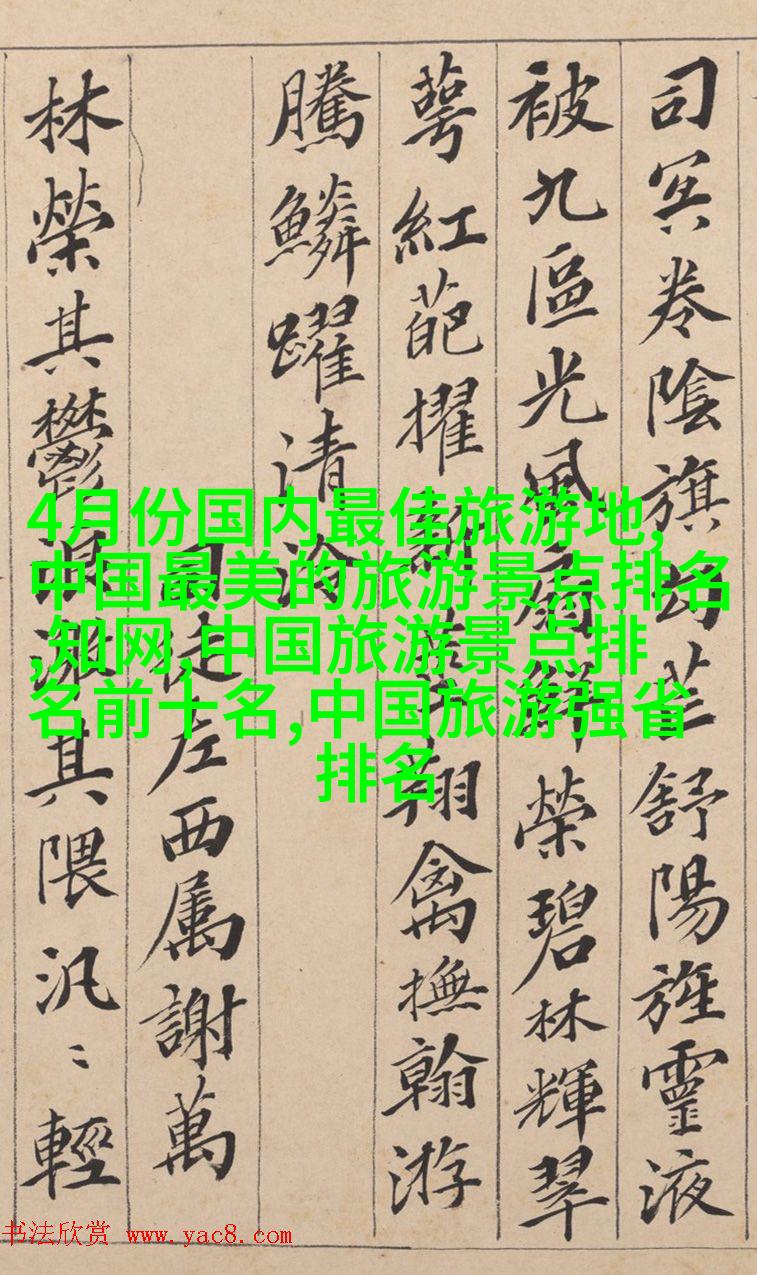 司冥卷陰旗句芒舒陽旌靈液
被九區光風扇鮮榮碧林輝翠
萼紅葩擢新莖翔禽撫翰游
騰鱗躍清泠
司徒左西属謝萬
林榮其鬱浪激其隈汎〻輕
4月份国内最佳旅游地,
中国最美的旅游景点排名
,知网,中国旅游景点排
名前十名,中国旅游强省
排名
书法欣赏 www.yac8.com